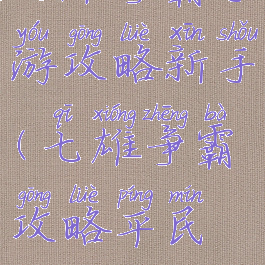 yóu gōng lüè xīn shǒu
游攻略新手
qī xióng zhēng bà
(七雄争霸
gōng lüè píng mín
攻略平民